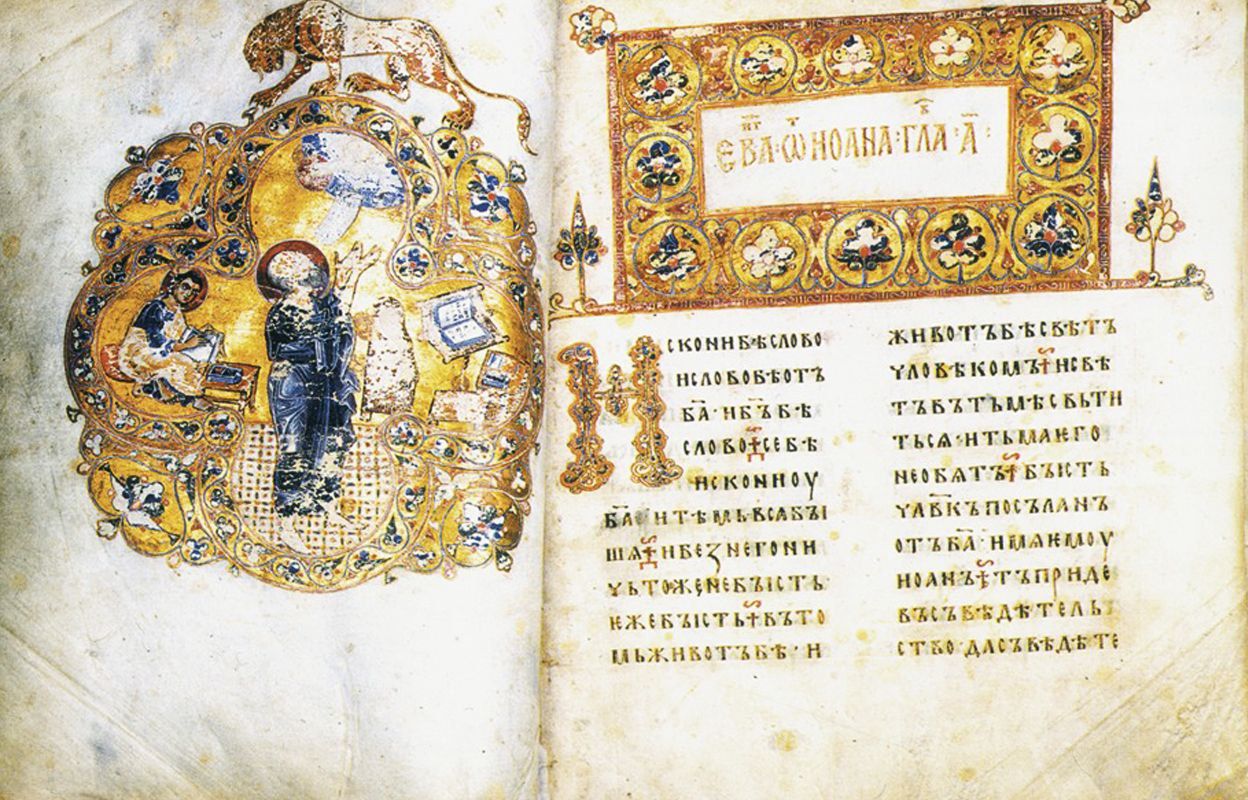 ЕВА҃Г · Ѡ҃Т ИОАНА · ГЛА҃В · А҃ ·
ИСКОНИ БѢ СЛОВО
И СЛОВО БѢ ОТЪ
Б҃А · И Б҃Ъ БѢ
СЛОВО СЕ БѢ
ИСКОНИ ОУ
Б҃А · И ТѢМЬ ВСА БЫ
ШѦ И БЕЗ НЕГО НИ
ЧЬТОЖЕ НЕ БЫСТЬ ·
ЕЖЕ БЫСТЬ ВЪ ТО
МЬ ЖИВОТЪ БѢ · И
ЖИВОТЪ БѢ СВѢТЪ
ЧЛОВѢКОМЪ И СВѢ
ТЪ ВЪ ТЬМѢ СВЬТИ
ТЬСѦ · И ТЬМА ѤГО
НЕ ОБѦТЪ БЫСТЬ
ЧЛ҃ВКЪ ПОСЪЛАНЪ
ОТЪ Б҃А · ИМѦ ѤМОУ
ИОАНЪ ТЪ ПРИДЕ
ВЪ СЪВѢДѢТЕЛЬ
СТВО · ДА СЪВѢДѢТЕ